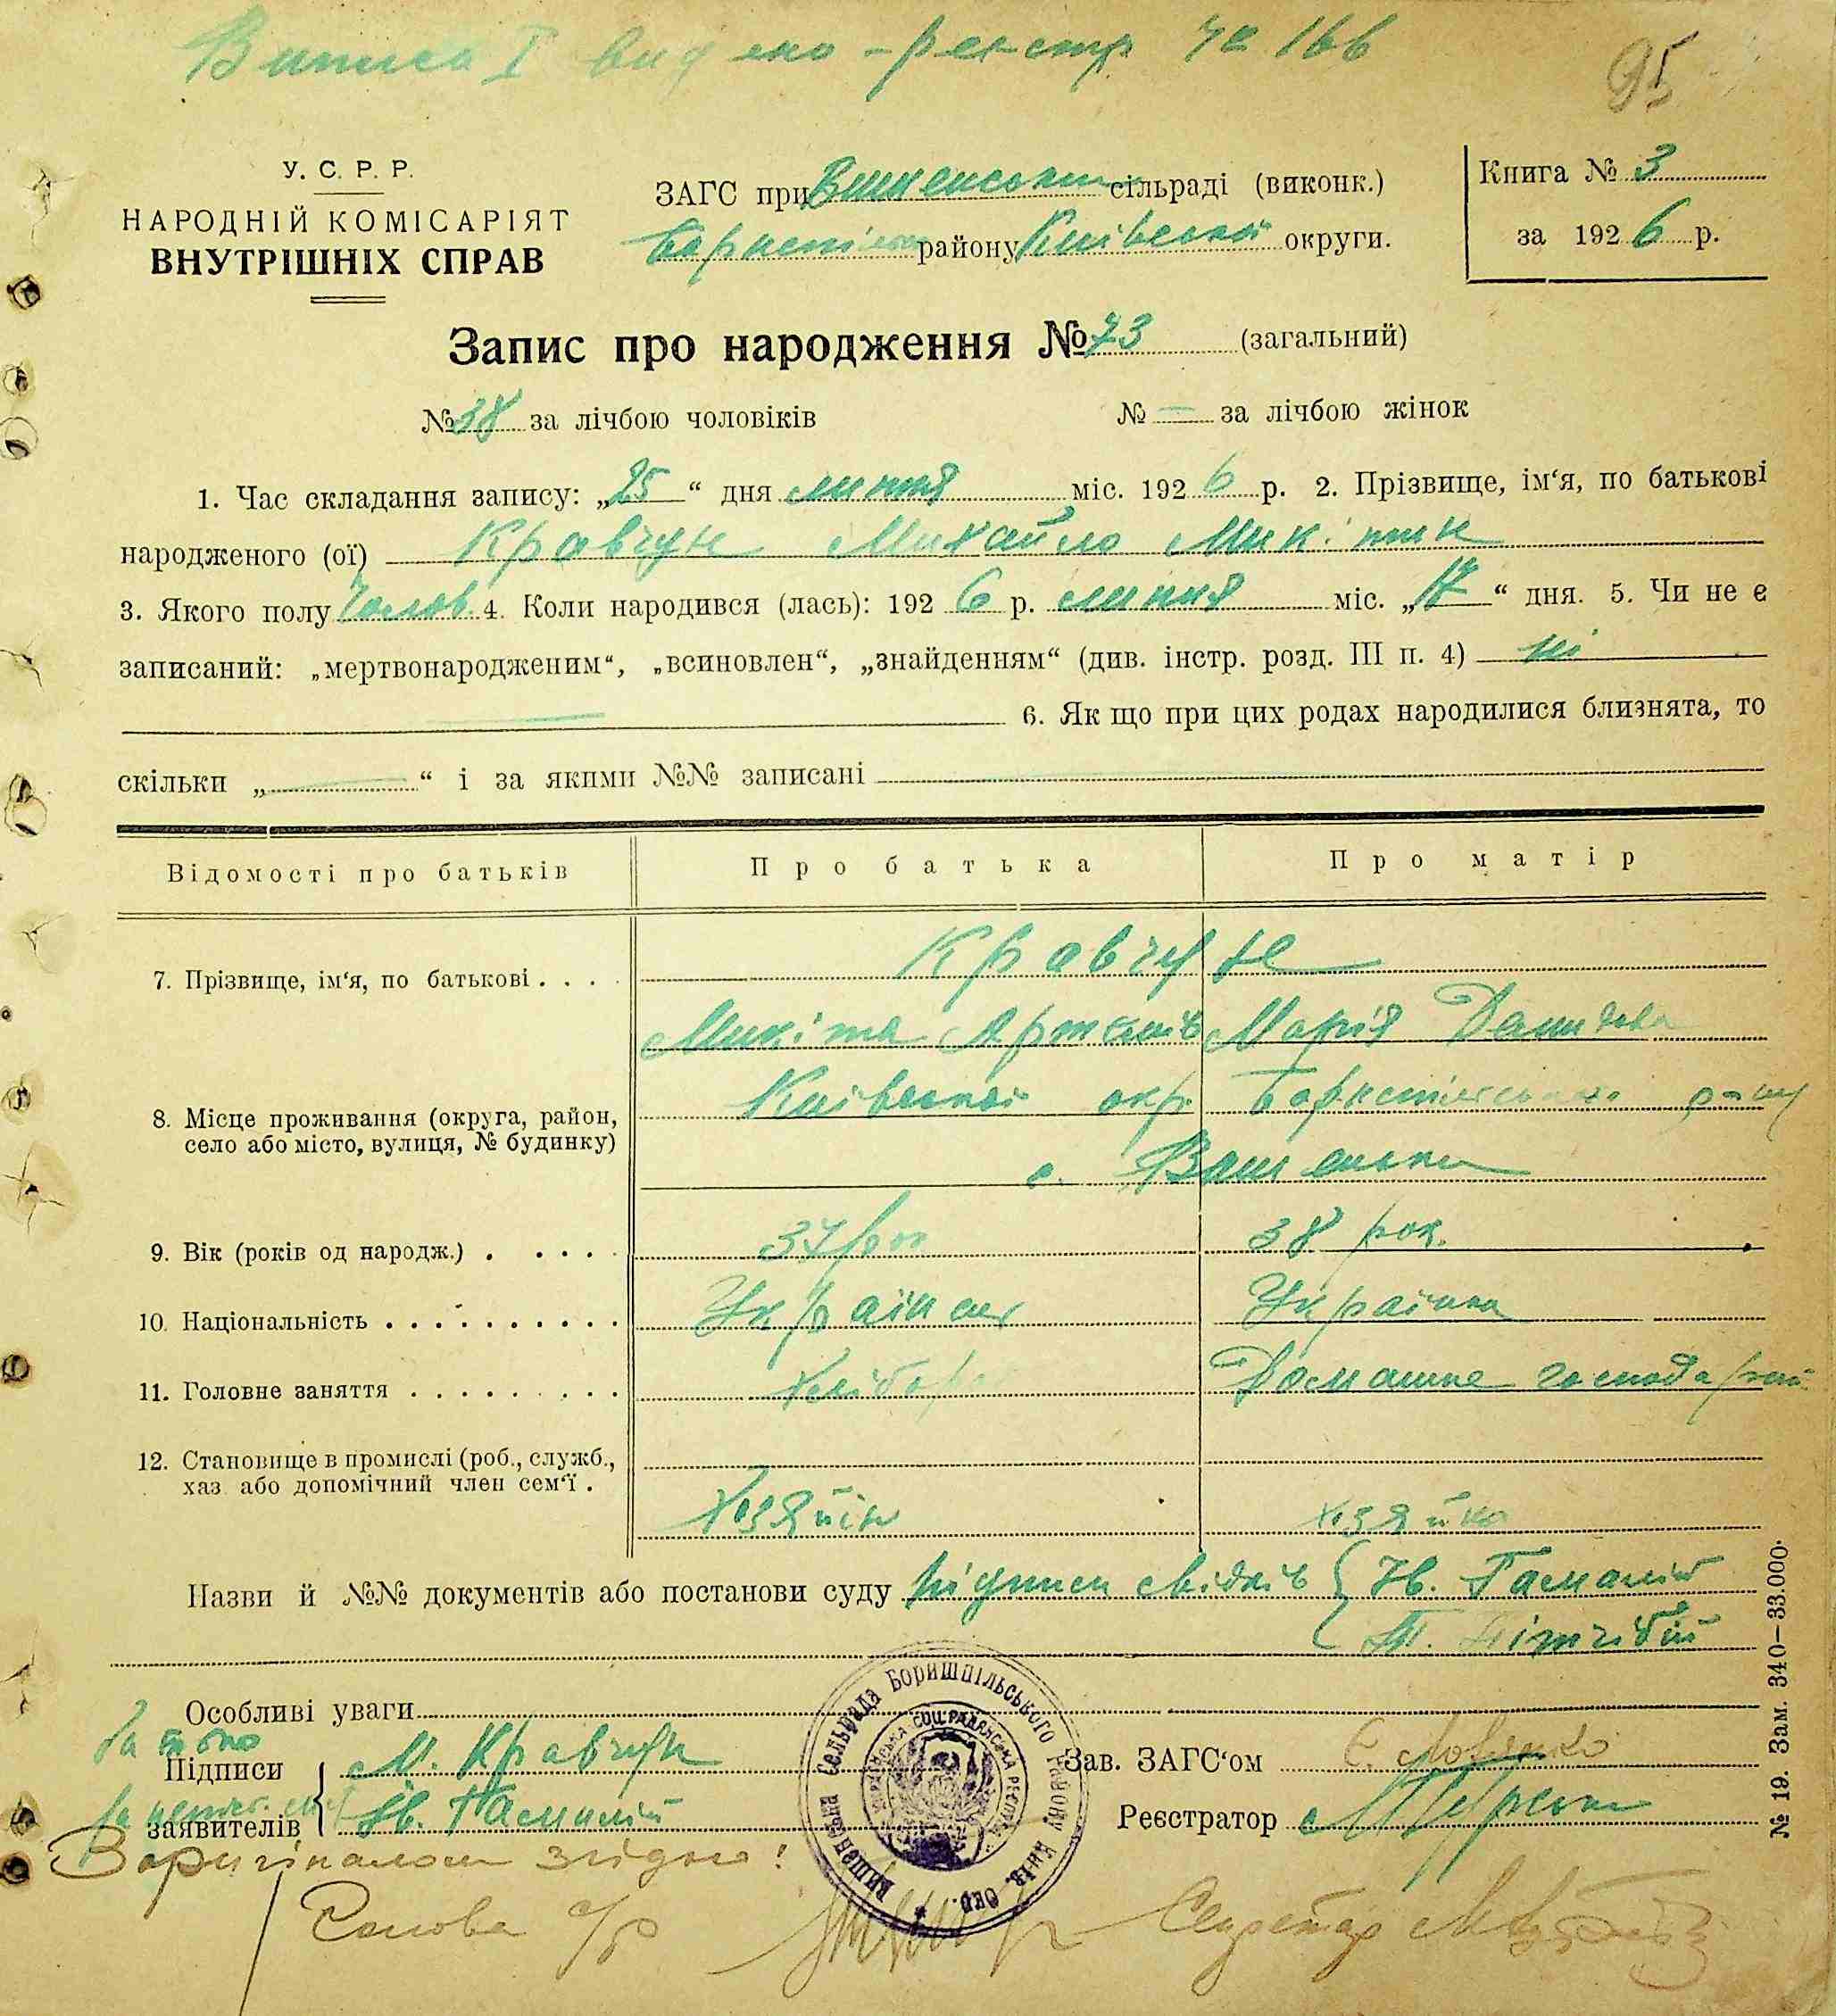 Виписа I видано - реєстр № 166
95
У. С. Р. Р.
НАРОДНІЙ КОМІСАРІЯТ
ВНУТРІШНІХ СПРАВ
ЗАГС при Вишенській сільраді (виконк.)
району Київської округи.
Книга № 3
за 1926 р.
Запис про народження № 73 (загальний)
№ 38 за лічбою чоловіків № — за лічбою жінок
1. Час складання запису: „25“ дня липня міс. 1926 р. 2. Прізвище, ім‘я, по батькові
народженого (ої) Кравчук Михайло Микітик
3. Якого полу Чолов. 4. Коли народився (лась): 1926 р. липня міс. „17“ дня. 5. Чи не є
записаний: „мертвонародженим“, „всиновлен“, „знайденням“ (див. інстр. розд. III п. 4) ні
6. Як що при цих родах народилися близнята, то
скільки „ — “ і за якими №№ записані
Відомості про батьків Про батька Про матір
Кравчук
7. Прізвище, ім‘я, по батькові . . . .
Микіта Артемів Марія Данилова
8. Місце проживання (округа, район, село або місто, вулиця, № будинку) Київської окр. Бориспільського рану
с. Вишеньки
9. Вік (років од народж.) . . . . . 37 рок 38 рок.
10. Національність . . . . . . . . . . Українец Українка
11. Головне заняття . . . . . . . . . Хлібор Домашнє господар
12. Становище в промислі (роб., служб.,
хаз. або допомічний член сем‘ї .
Хозяйін хозяйка
Назви й №№ документів або постанови суду підписи свідків { Ів. Гамалій
Особливі уваги
За
Підписи М. Кравчук Зав. ЗАГС‘ом
За
заявителів Ів. Гамалій Реєстратор
Вишенська Сельрада Боришпільського Району Київ. Окр.
З оригіналом згідно!
Голова с/р Секретар
№ 19. Зам. 340—33.000.